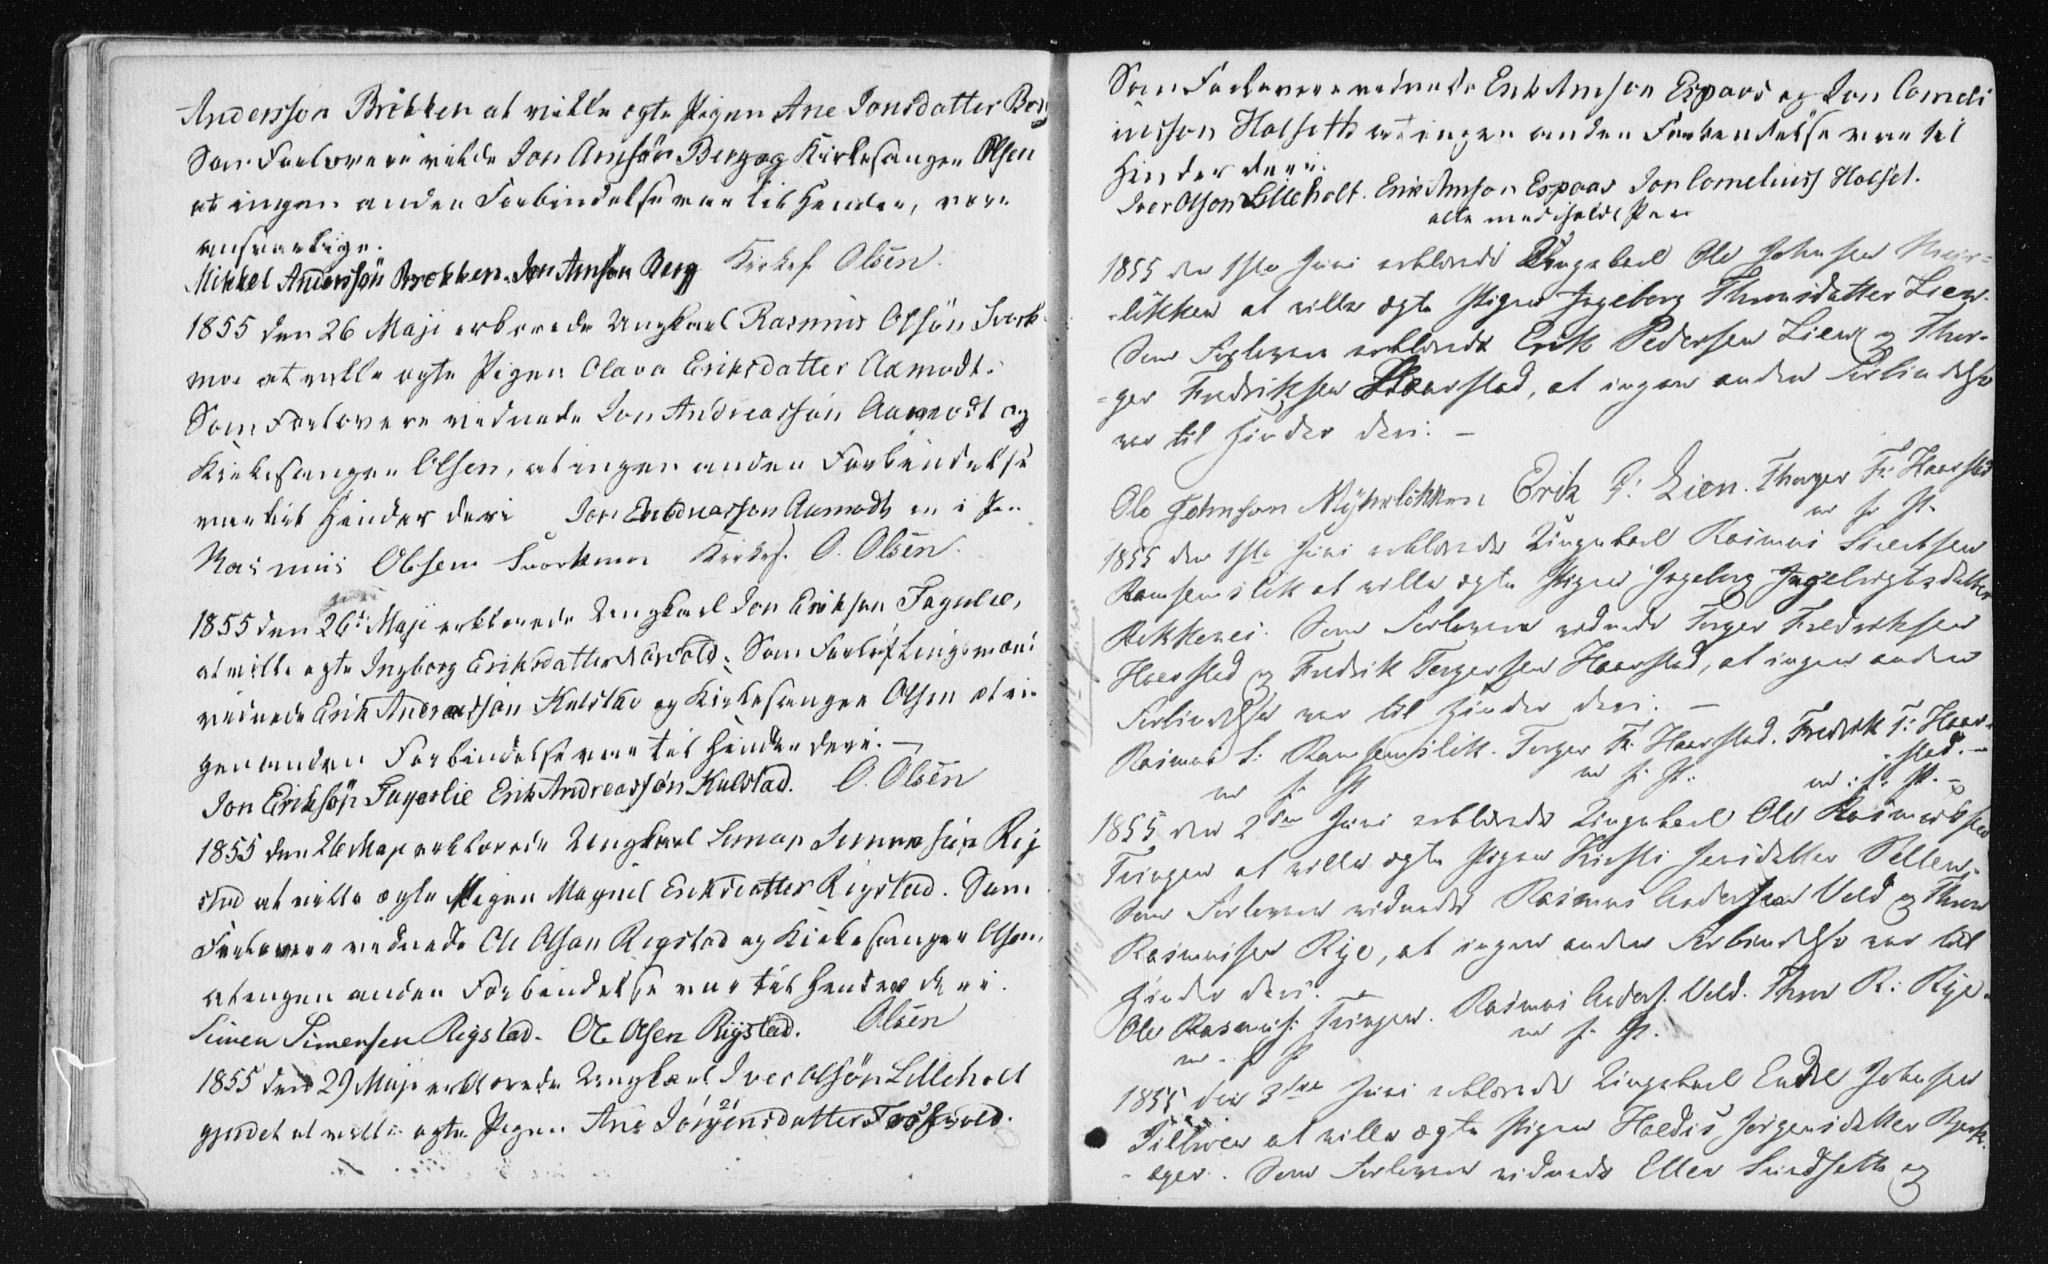 Andersson Brækken at ville egte Pigen Ane Jonsdatter Berg
Som Forlovere vidnede Jon Arnsøn Berg og Kirkesanger Olsen
at ingen anden Forbindelse var til Hender, være
ansvarlige.
Mikkel Andersson Brækken. Jon Arnsøn Berg Kirkes. Olsen.
1855 den 26 Maji erklærede Ungkarl Rasmus Olsøn Svork-
moe at ville egte Pigen Olava Eriksdatter Aamodt.
Som Forlovere vidnede Jon Andreassøn Aamodt og
Kirkesanger Olsen, at ingen anden Forbindelse
var til Hinder deri Jon Andreasson Aamodt m i P
Rasmus Olsen Svorkmoe Kirkes. O. Olsen.
1855 den 26 Maji erklærede Ungkarl Jon Eriksøn Fagerlie,
at ville egte Ingborg Eriksdatter
vidnede Erik Andreassøn Kalstad og Kirkesanger Olsen at in-
gen anden Forbindelse var til Hinder deri. —
Jon Eriksøn Fagerlie Erik Andreassøn Kalstad. O. Olsen
1855 den 26 Maji erklærede Ungkarl Simen Simensøn Rig
stad at ville egte Pigen Magnil Eriksdatter Rigstad. Som
Forlovere vidnede Ole Olsøn Rigstad og Kirkesanger Olsen,
at ingen anden Forbindelse var til Hinder deri.
Simen Simensen Rigstad. Ole Olsen Rigstad. Olsen
1855 den 29 Maji erklærede Ungkarl Iver Olsøn Lilleholt
gjedet at ville egte Pigen Ane Jörgensdatter
Som Forlovere vidnede Erik Arnsøn Espaas og Jon Corneli
iusson Holseth at ingen anden Forbindelse var til
Hinder deri.
Iver Olson Lilleholt. Erik Arnson Espaas Jon Corneliuss Holset.
alle med holdt Pen
1855 den 1ste Juni erklærede Ungekarl Ole Johnsen Myhr-
-løkken at ville ægte Pigen Ingeborg Thoresdatter Lien.
Som Forlovere erklærede Erik Pedersen Lien og Thor-
-ger Fredriksen Haarstad, at ingen anden Forbindelse
var til Hinder deri. —
Ole Johnson Myhrløkken Erik P: Lien. Thorger Fr: Haarstad
m. f. P.
1855 den 1ste Juni erklærede Ungekarl Rasmus Sivertsen
Ramsemslett at ville ægte Pigen Ingeborg Ingebrigtsdatter
Bekkenei. Som Forlovere vidnede Torger Fredriksen
Haarstad og Fredrik Torgersen Haarstad, at ingen anden
Forbindelse var til Hinder deri. —
Rasmus S: Ramsemslett. Torger Fr: Haarstad. Fredrik T: Haar-
-stad. —
m. f. P. m. f. P. m. f. P. —
1855 den 2den Juni erklærede Ungekarl Ole Rasmussen
Tvingen at ville ægte Pigen Kirsti Jensdatter
Som Forlovere vidnede Rasmus Andersen Veld og Thore
Rasmussen Rye, at ingen anden Forbindelse var til
Hinder deri.
Ole Rasmuss: Tvingen. Rasmus Anders. Veld. Thore R: Rye.
m. f. P. m. f. P.
1855 den 3die Juni erklærede Ungekarl Endre Johnsen
at ville ægte Pigen Haldis Jørgensdatter Bjerk-
-ager. Som Forlovere vidnede Ellev Sundseth og